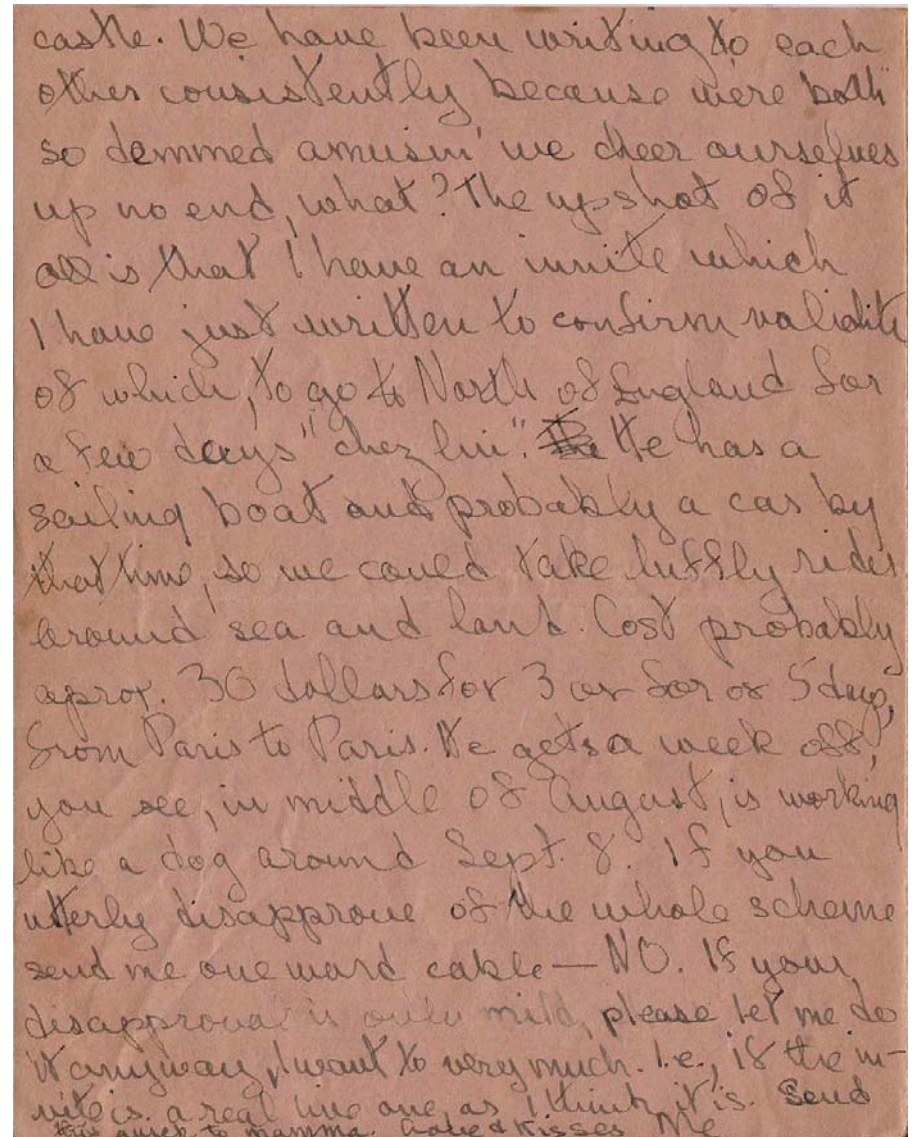 castle. We have been writing to each
other consistently because we're both
so demmed amusin' we cheer ourselves
up no end, what? The upshot of it
all is that I have an invite which
I have just written to confirm validite
of which, to go to North of England for
a few days "chez lui". He has a
sailing boat and probably a car by
that time, so we could take luffly rides
around sea and land. Cost probably
aprox. 30 dollars for 3 or for or 5 days,
from Paris to Paris. He gets a week off,
you see, in middle of August, is working
like a dog around Sept. 8. If you
utterly disapprove of the whole scheme
send me one word cable — NO. If your
disapproval is only mild, please let me do
it anyway, I want to very much. I.e., if the in-
vite is a real live one, as I think it is. Send
this quick to mamma. Love & Kisses Me